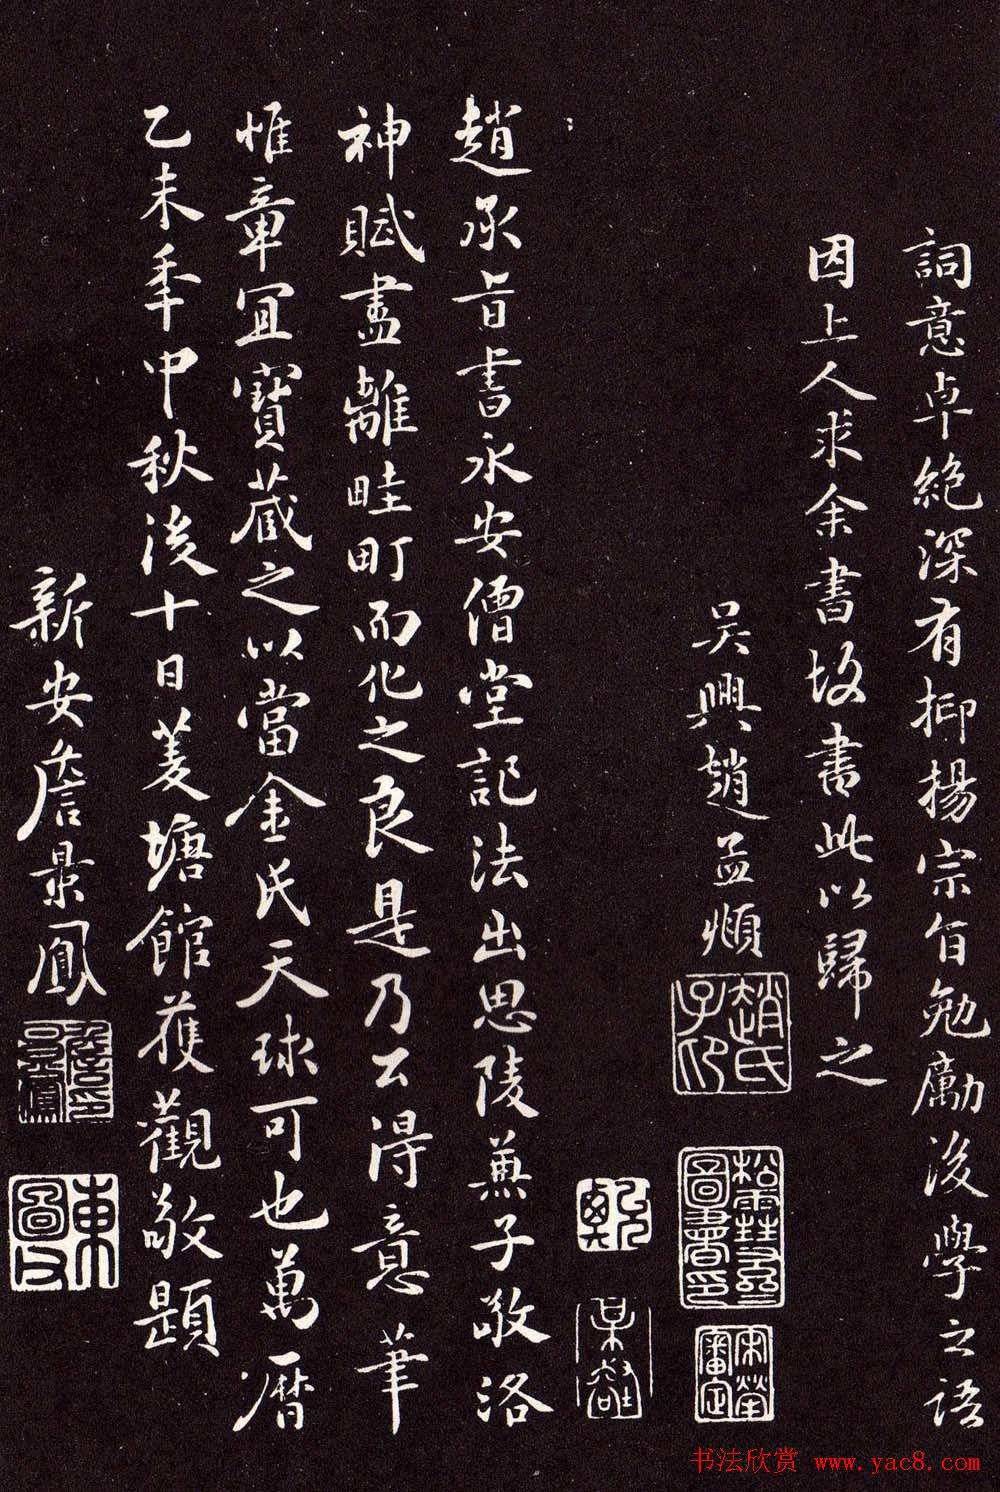 詞意卓絶深有抑揚宗旨勉勵後學之語
因上人求余書故書此以歸之
吴興趙孟頫
趙氏子印
松雪齋圖書印
宋犖審定
乾
趙承旨書永安僧堂記法出思陵兼子敬洛
神賦盡離畦町而化之良是乃公得意筆
惟章宜寶藏之以當金氏天球可也萬曆
乙未年中秋後十日菱塘館獲觀敬題
新安詹景鳳
東圖父
书法欣赏 www.yac8.com